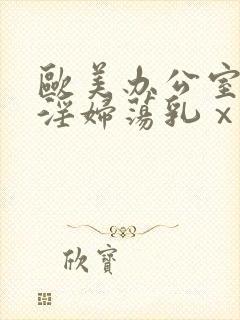 歐美办公室
淫婦蕩乳x
欣寶